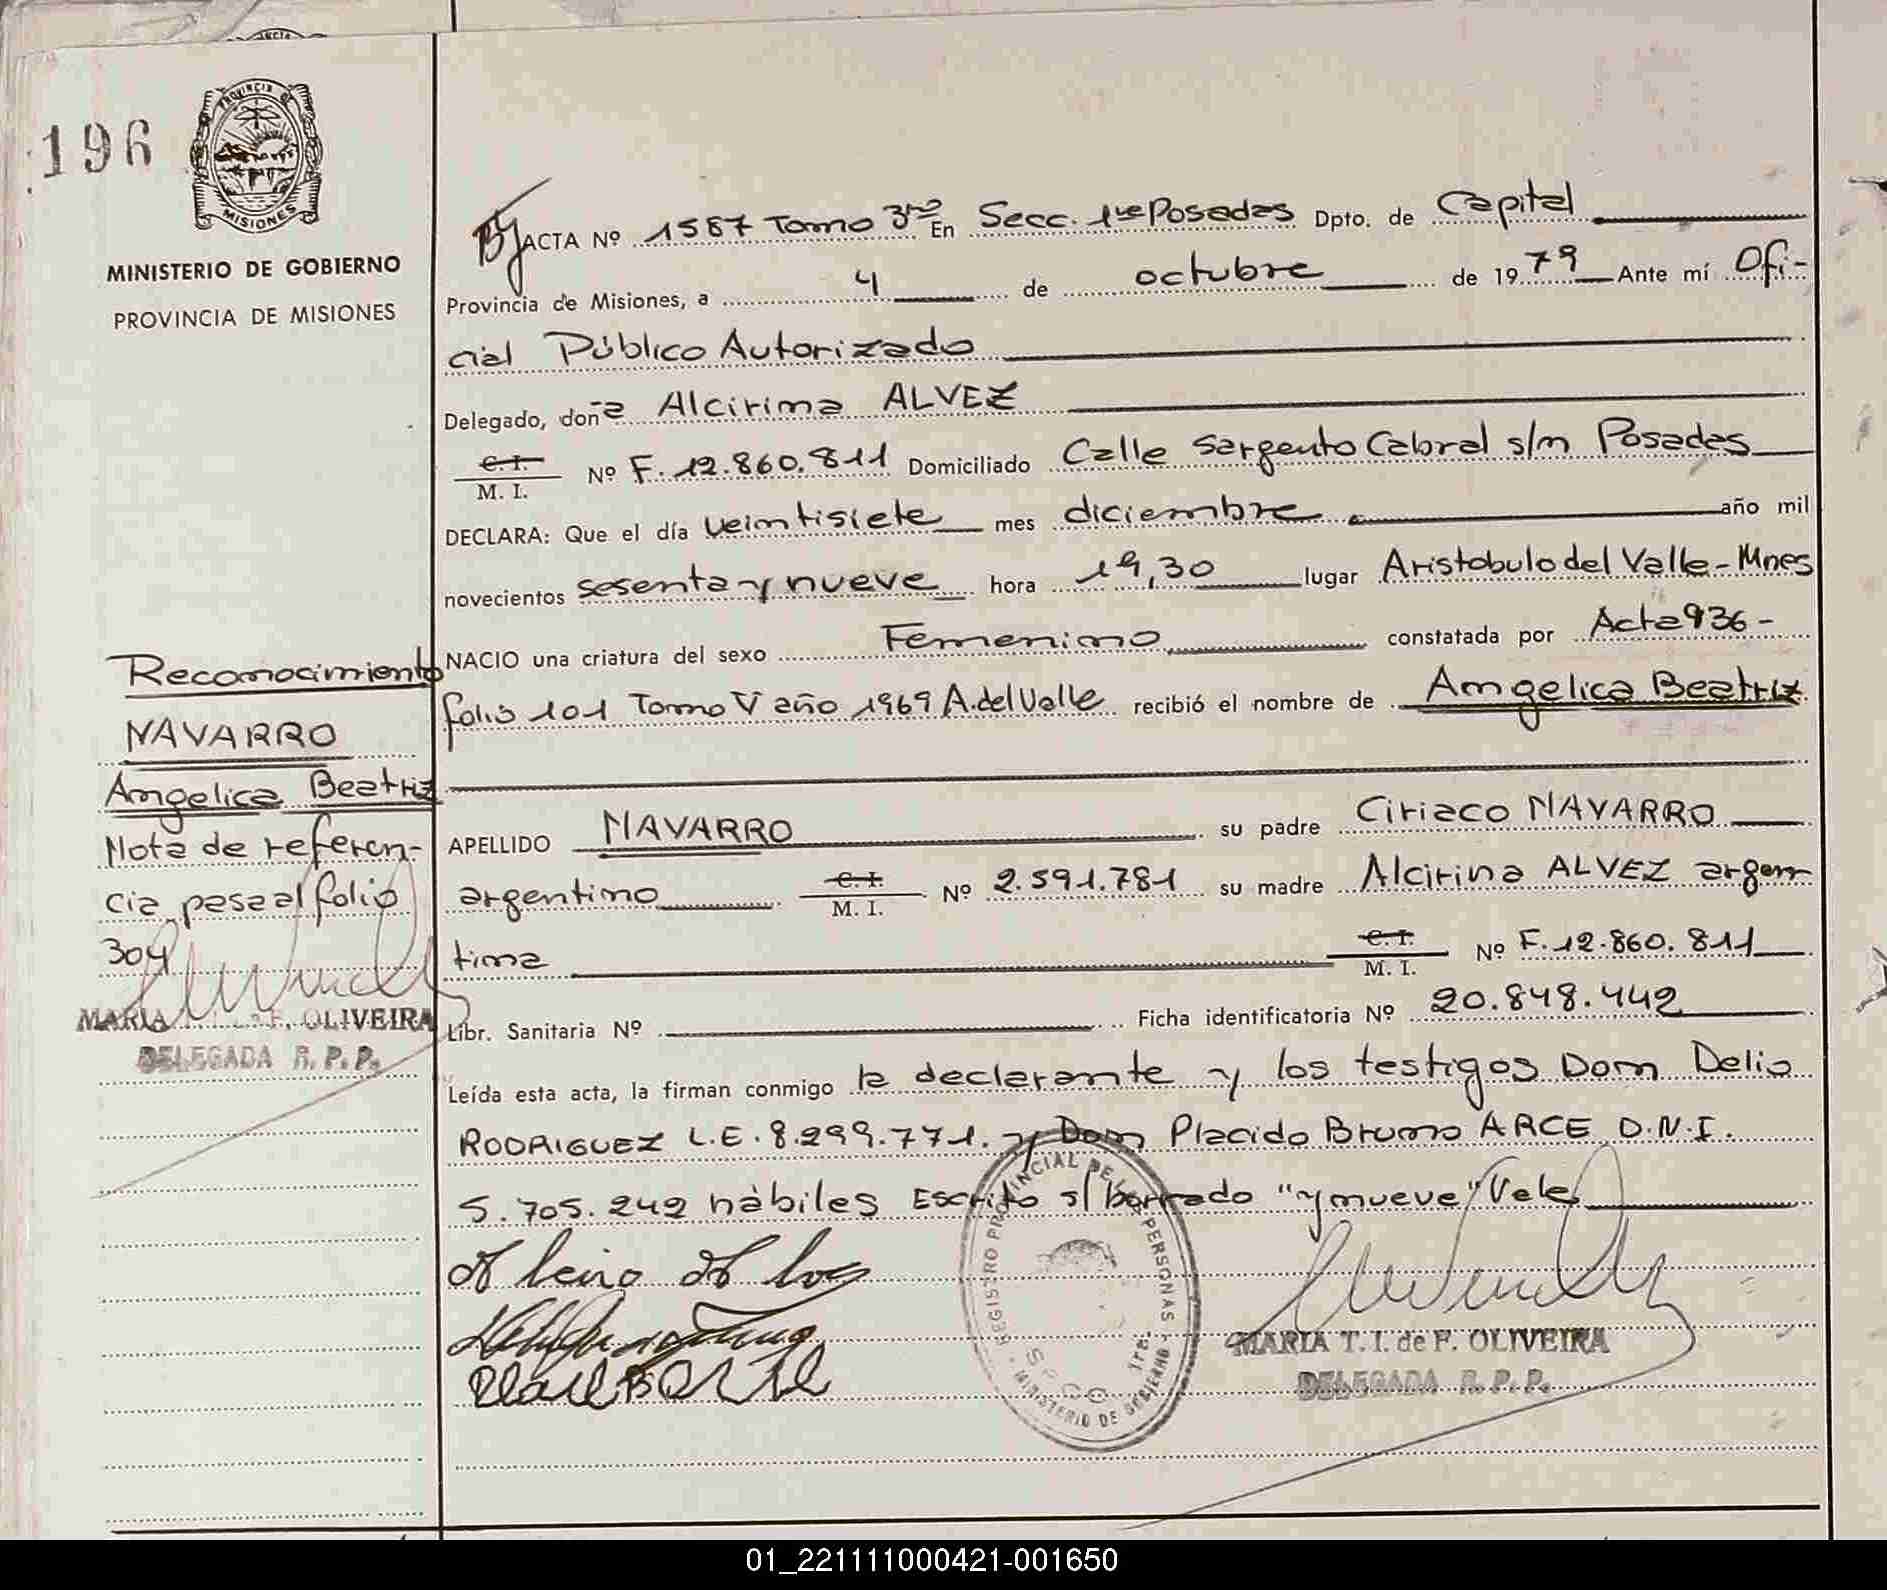 196
PROVINCIA DE
MISIONES
MINISTERIO DE GOBIERNO
PROVINCIA DE MISIONES
Reconocimiento
NAVARRO
Angelica Beatriz
Nota de referen-
cia pasa al folio
304
MARIA OLIVEIRA
DELEGADA R. P. P.
ACTA Nº 1587 Tomo 3ro En Secc. 1ra Posadas Dpto. de Capital
Provincia de Misiones, a 4 de octubre de 1979 Ante mí Ofi-
cial Público Autorizado
Delegado, doña Alcirina ALVEZ
C.I. M. I. Nº F. 12.860.811 Domiciliado Calle Sargento Cabral s/n Posadas
DECLARA: Que el día veintisiete mes diciembre año mil
novecientos sesenta y nueve hora 19,30 lugar Aristobulo del Valle - Mnes
NACIO una criatura del sexo Femenino constatada por Acta 936 -
folio 101 Tomo V año 1969 A. del Valle recibió el nombre de Angelica Beatriz
APELLIDO NAVARRO su padre Ciriaco NAVARRO
argentino C.I. M. I. Nº 2.591.781 su madre Alcirina ALVEZ argen
tina C.I. M. I. Nº F. 12.860.811
Libr. Sanitaria Nº Ficha identificatoria Nº 20.848.442
Leída esta acta, la firman conmigo la declarante y los testigos Don Delio
RODRIGUEZ L.E. 8.299.771. y Don Placido Bruno ARCE D.N.I.
5.705.242 hábiles Escrito s/ borrado "y nueve" Vale
REGISTRO PROVINCIAL DE LAS PERSONAS
MINISTERIO DE GOBIERNO
SECC. 1ra.
MARIA T. I. de F. OLIVEIRA
DELEGADA R. P. P.
01_221111000421-001650